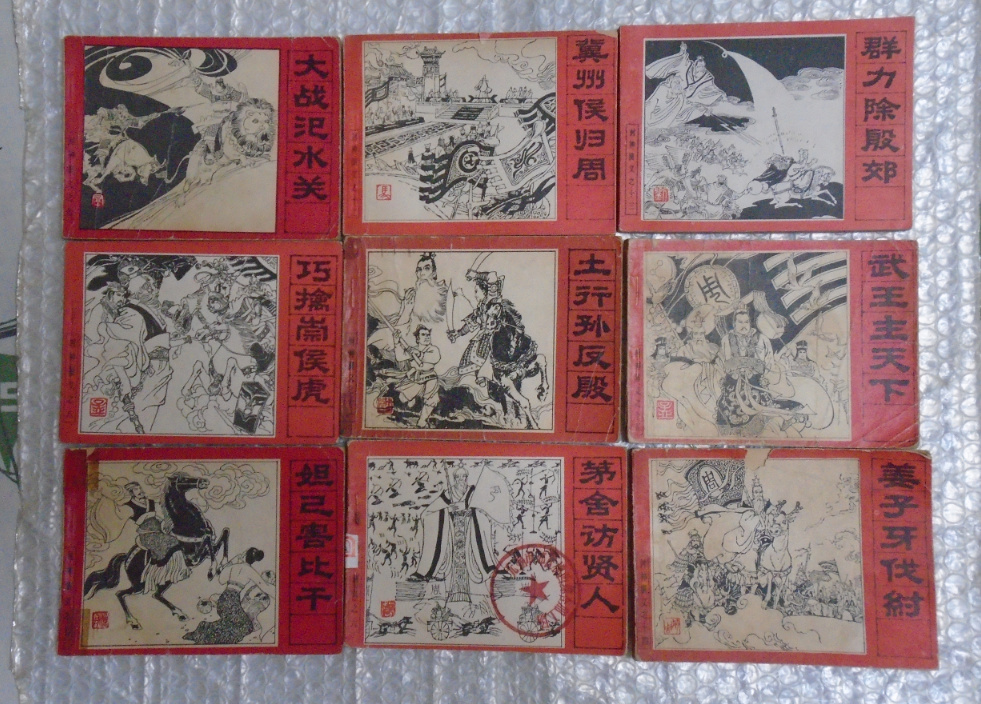 大战汜水关
冀州侯归周
群力除殷郊
巧擒崇侯虎
土行孙反殷
武王主天下
妲己害比干
茅舍访贤人
姜子牙伐纣
周
周